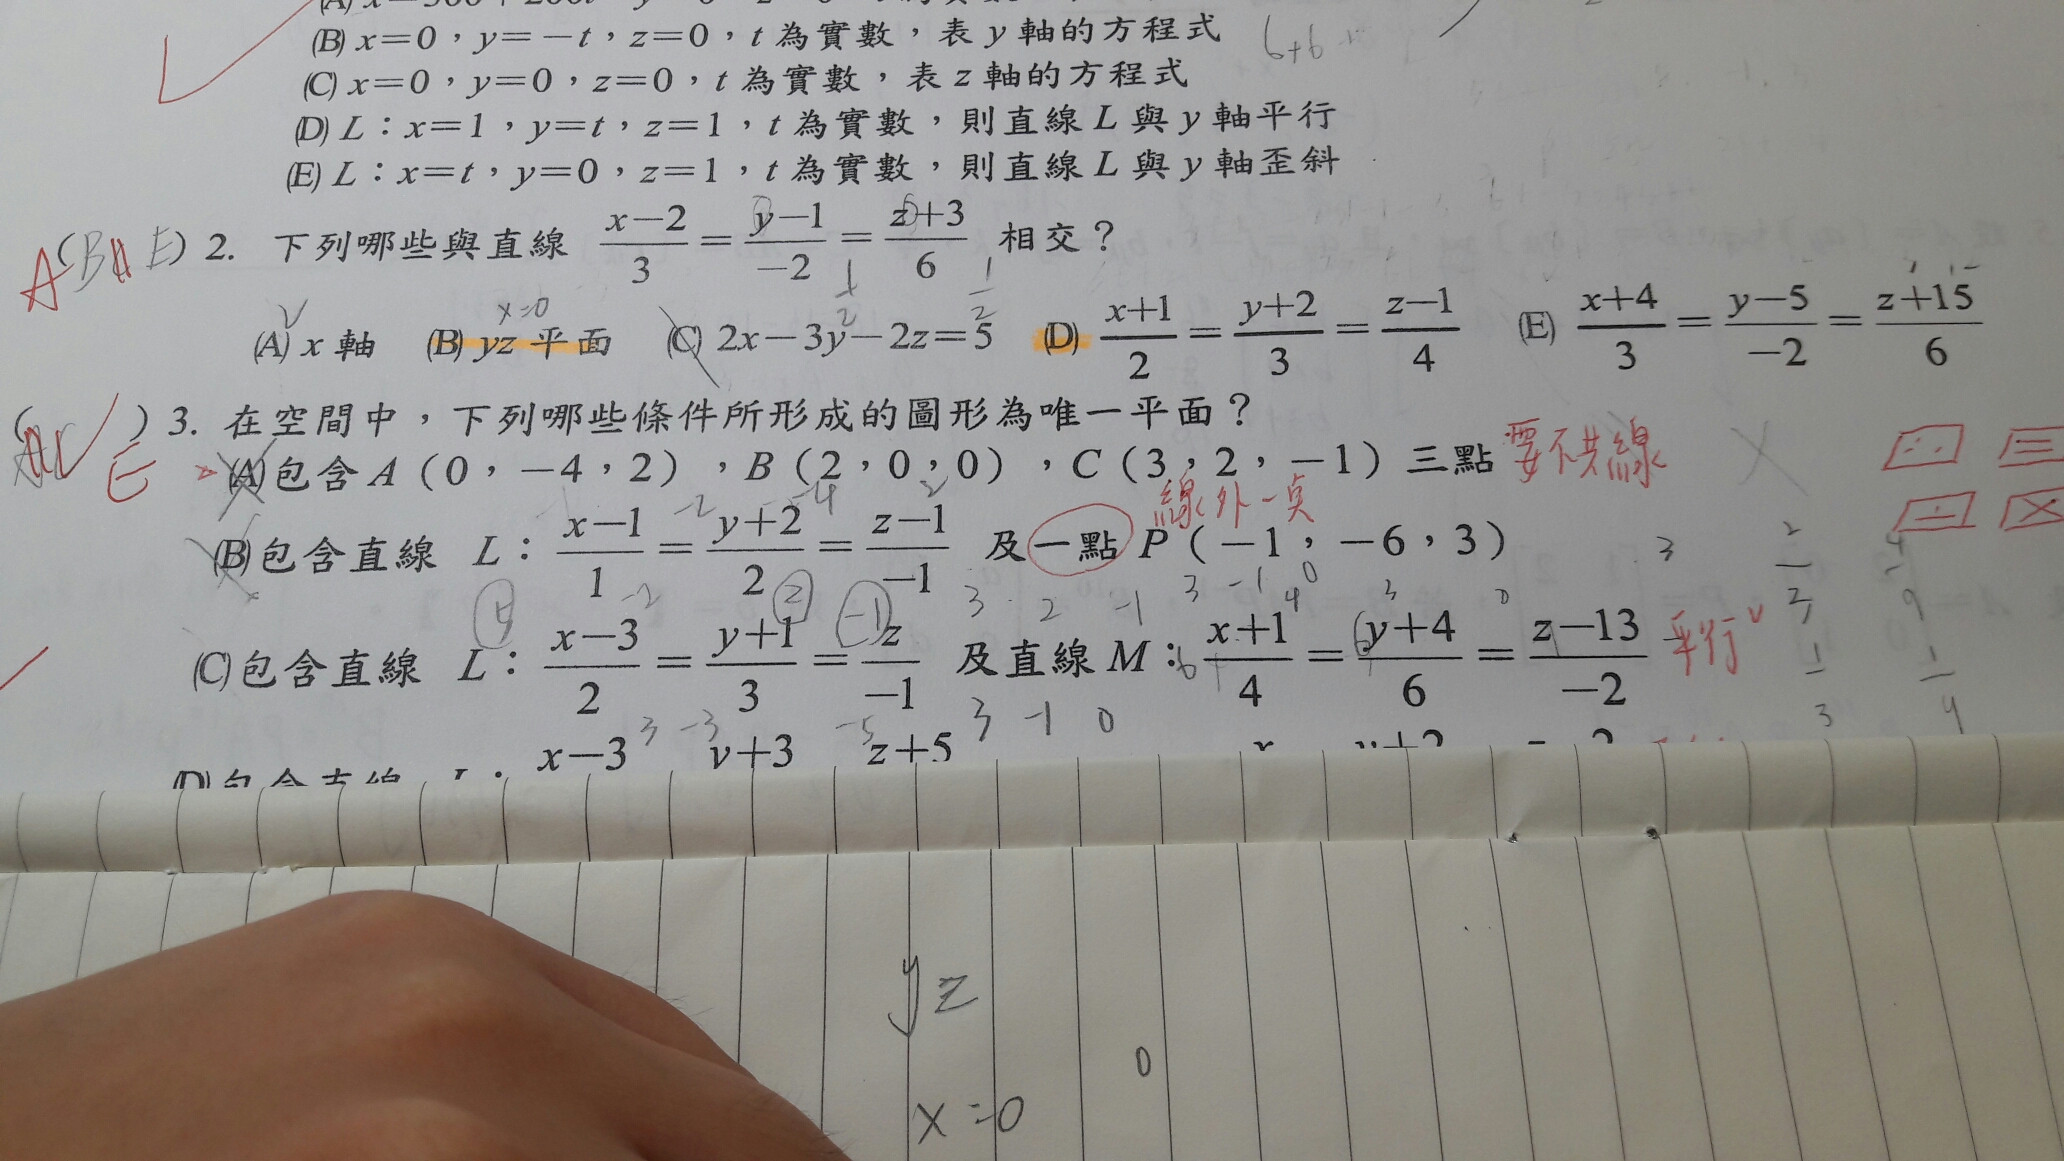 (B) x=0，y=−t，z=0，t 為實數，表 y 軸的方程式
(C) x=0，y=0，z=0，t 為實數，表 z 軸的方程式
(D) L：x=1，y=t，z=1，t 為實數，則直線 L 與 y 軸平行
(E) L：x=t，y=0，z=1，t 為實數，則直線 L 與 y 軸歪斜
6+6
A (B E) 2. 下列哪些與直線 (x−2)/3 = (y−1)/−2 = (z+3)/6 相交？
x=0
(A) x 軸 (B) yz 平面 (C) 2x−3y−2z=5 (D) (x+1)/2 = (y+2)/3 = (z−1)/4 (E) (x+4)/3 = (y−5)/−2 = (z+15)/6
( ) 3. 在空間中，下列哪些條件所形成的圖形為唯一平面？
E
(A) 包含 A（0，−4，2），B（2，0，0），C（3，2，−1）三點 要不共線
線外一点
(B) 包含直線 L：(x−1)/1 = (y+2)/2 = (z−1)/−1 及一點 P（−1，−6，3）
3 2 −1 3 −1 0
(C) 包含直線 L：(x−3)/2 = (y+1)/3 = z/−1 及直線 M：(x+1)/4 = (y+4)/6 = (z−13)/−2 平行
3 −1 0
(D) 包含直線 L： x−3 y+3 z+5
yz
0
x=0